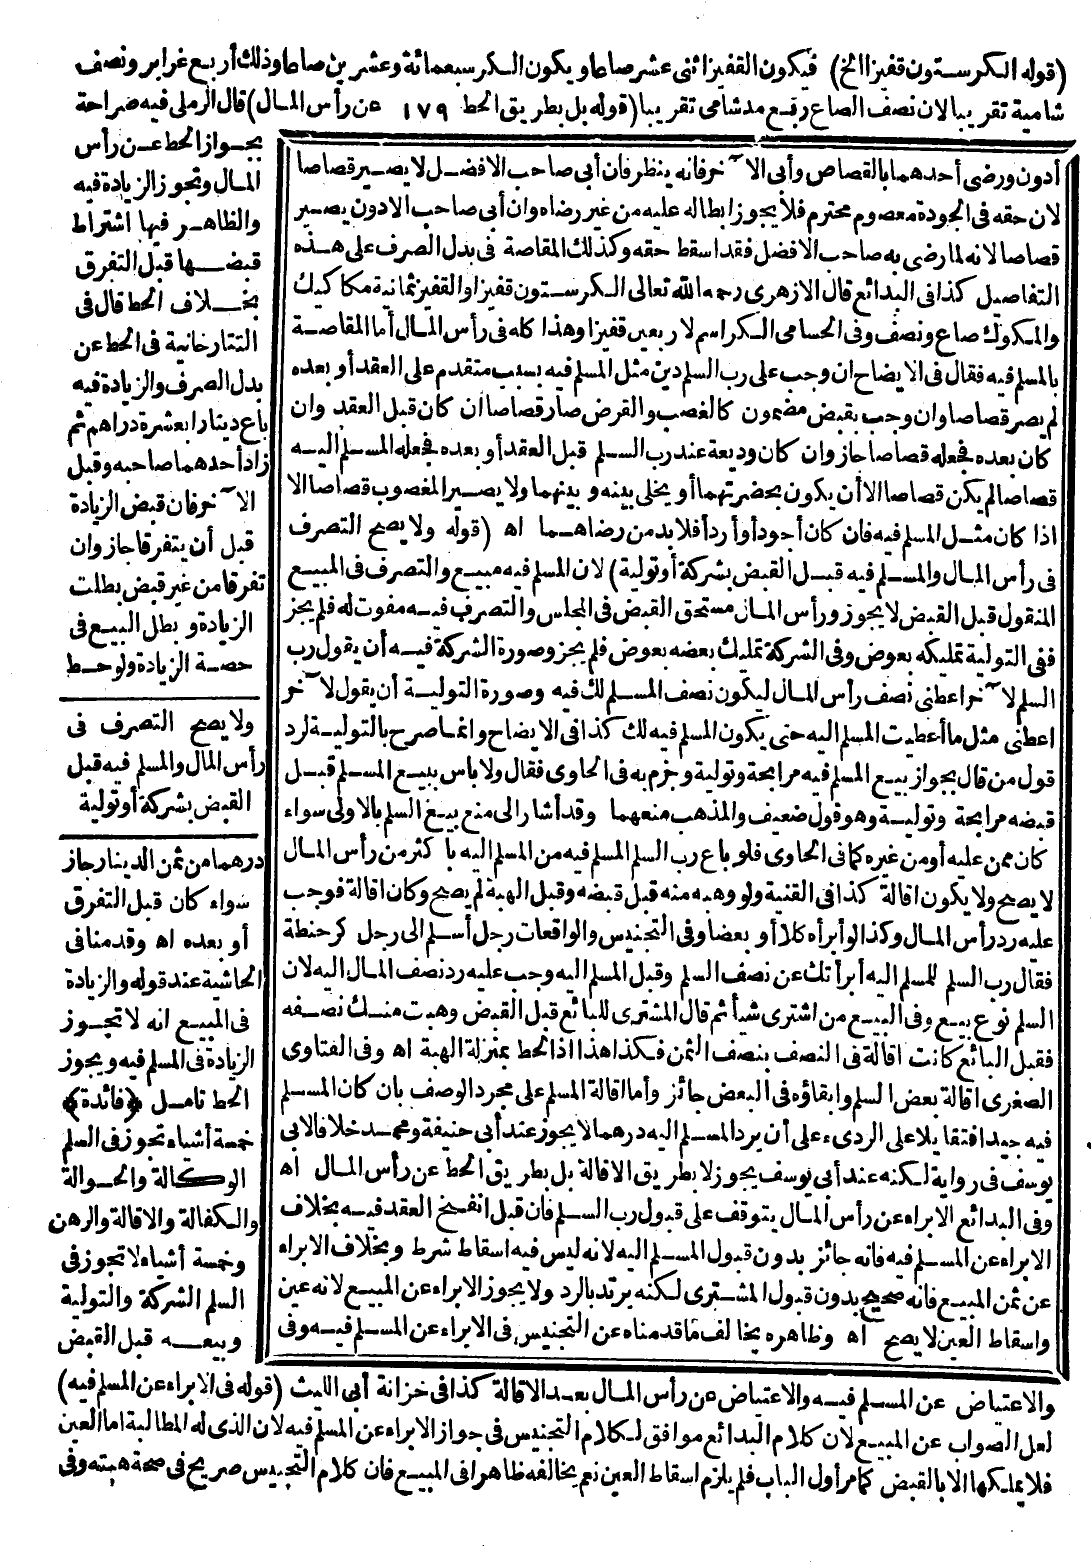 (قوله الكرستون قفيزا الخ) فيكون القفيز اثنى عشر صاعا ويكون الكر سبعمائة وعشرين صاعا وذلك أربع غراير ونصف
شامية تقريبا لان نصف الصاع ربع مد شامى تقريبا (قوله بل بطريق الحط ١٧٩ عن رأس المال) قال الرملى فيه صراحة
بجواز الحط عن رأس
المال وتجوز الزيادة فيه
والظاهر فيها اشتراط
قبضها قبل التفرق
بخلاف الحط قال فى
التتارخانية فى الحط عن
بدل الصرف والزيادة فيه
باع دينارا بعشرة دراهم ثم
زاد أحدهما صاحبه وقبل
الآخر فان قبض الزيادة
قبل أن يتفرقا جاز وان
تفرقا من غير قبض بطلت
الزيادة وبطل البيع فى
حصة الزيادة ولو حط
ولا يصح التصرف فى
رأس المال والمسلم فيه قبل
القبض بشركة أو تولية
درهما من ثمن الدينار جاز
سواء كان قبل التفرق
أو بعده اه وقدمنا فى
الحاشية عند قوله والزيادة
فى المبيع انه لا تجوز
الزيادة فى المسلم فيه ويجوز
الحط تامل ﴿فائدة﴾
خمسة أشياء تجوز فى السلم
الوكالة والحوالة
والكفالة والاقالة والرهن
وخمسة أشياء لا تجوز فى
السلم الشركة والتولية
وبيعه قبل القبض
أدون ورضى أحدهما بالقصاص وأبى الآخر فانه ينظر فان أبى صاحب الافضل لا يصير قصاصا
لان حقه فى الجودة معصوم محترم فلا يجوز ابطاله عليه من غير رضاه وان أبى صاحب الادون يصير
قصاصا لانه لما رضى به صاحب الافضل فقد اسقط حقه وكذلك المقاصة فى بدل الصرف على هذه
التفاصيل كذا فى البدائع قال الازهرى رحمه الله تعالى الكر ستون قفيزا والقفيز ثمانية مكاكيك
والمكوك صاع ونصف وفى الحسامى الكر اسم لاربعين قفيزا وهذا كله فى رأس المال أما المقاصة
بالمسلم فيه فقال فى الايضاح ان وجب على رب السلم دين مثل المسلم فيه بسبب متقدم على العقد أو بعده
لم يصر قصاصا وان وجب بقبض مضمون كالغصب والقرض صار قصاصا ان كان قبل العقد وان
كان بعده فجعله قصاصا جاز وان كان وديعة عند رب السلم قبل العقد أو بعده فجعله المسلم اليه
قصاصا لم يكن قصاصا الا أن يكون بحضرتهما أو يخلى بينه وبينهما ولا يصير المغصوب قصاصا الا
اذا كان مثل المسلم فيه فان كان أجود أو أردأ فلا بد من رضاهما اه (قوله ولا يصح التصرف
فى رأس المال والمسلم فيه قبل القبض بشركة أو تولية) لان المسلم فيه مبيع والتصرف فى المبيع
المنقول قبل القبض لا يجوز ورأس المال مستحق القبض فى المجلس والتصرف فيه مفوت له فلم يجز
ففى التولية تمليكه بعوض وفى الشركة تمليك بعضه بعوض فلم يجز وصورة الشركة فيه أن يقول رب
السلم لآخر اعطنى نصف رأس المال ليكون نصف المسلم لك فيه وصورة التولية أن يقول لآخر
اعطنى مثل ما أعطيت المسلم اليه حتى يكون المسلم فيه لك كذا فى الايضاح وانما صرح بالتولية لرد
قول من قال بجواز بيع المسلم فيه مرابحة وتولية وجزم به فى الحاوى فقال ولا باس ببيع المسلم قبل
قبضه مرابحة وتولية وهو قول ضعيف والمذهب منعهما وقد أشار الى منع بيع السلم بالاولى سواء
كان ممن عليه أو من غيره كما فى الحاوى فلو باع رب السلم المسلم فيه من المسلم اليه باكثر من رأس المال
لا يصح ولا يكون اقالة كذا فى القنية ولو وهبه منه قبل قبضه وقبل الهبة لم يصح وكان اقالة فوجب
عليه رد رأس المال وكذا لو أبرأه كلا أو بعضا وفى التجنيس والواقعات رجل أسلم الى رجل كر حنطة
فقال رب السلم للمسلم اليه أبرأتك عن نصف السلم وقبل المسلم اليه وجب عليه رد نصف المال اليه لان
السلم نوع بيع وفى البيع من اشترى شيأ ثم قال المشترى للبائع قبل القبض وهبت منك نصفه
فقبل البائع كانت اقالة فى النصف بنصف الثمن فكذا هذا اذ الحط بمنزلة الهبة اه وفى الفتاوى
الصغرى اقالة بعض السلم وابقاؤه فى البعض جائز وأما اقالة المسلم على مجرد الوصف بان كان المسلم
فيه جيدا فتقايلا على الردىء على أن يرد المسلم اليه درهما لا يجوز عند أبى حنيفة ومحمد خلافا لابى
يوسف فى رواية لكنه عند أبى يوسف يجوز لا بطريق الاقالة بل بطريق الحط عن رأس المال اه
وفى البدائع الابراء عن رأس المال يتوقف على قبول رب السلم فان قبل انفسخ العقد فيه بخلاف
الابراء عن المسلم فيه فانه جائز بدون قبول المسلم اليه لانه ليس فيه اسقاط شرط وبخلاف الابراء
عن ثمن المبيع فانه صحيح بدون قبول المشترى لكنه يرتد بالرد ولا يجوز الابراء عن المبيع لانه عين
واسقاط العين لا يصح اه وظاهره يخالف ما قدمناه عن التجنيس فى الابراء عن المسلم فيه وفى
والاعتياض عن المسلم فيه والاعتياض عن رأس المال بعد الاقالة كذا فى خزانة أبى الليث (قوله فى الابراء عن المسلم فيه)
لعل الصواب عن المبيع لان كلام البدائع موافق لكلام التجنيس فى جواز الابراء عن المسلم فيه لان الذى له المطالبة اما العين
فلا يملكها الا بالقبض كما مر أول الباب فلم يلزم اسقاط العين نعم يخالفه ظاهرا فى المبيع فان كلام التجنيس صريح فى صحة هبته وفى